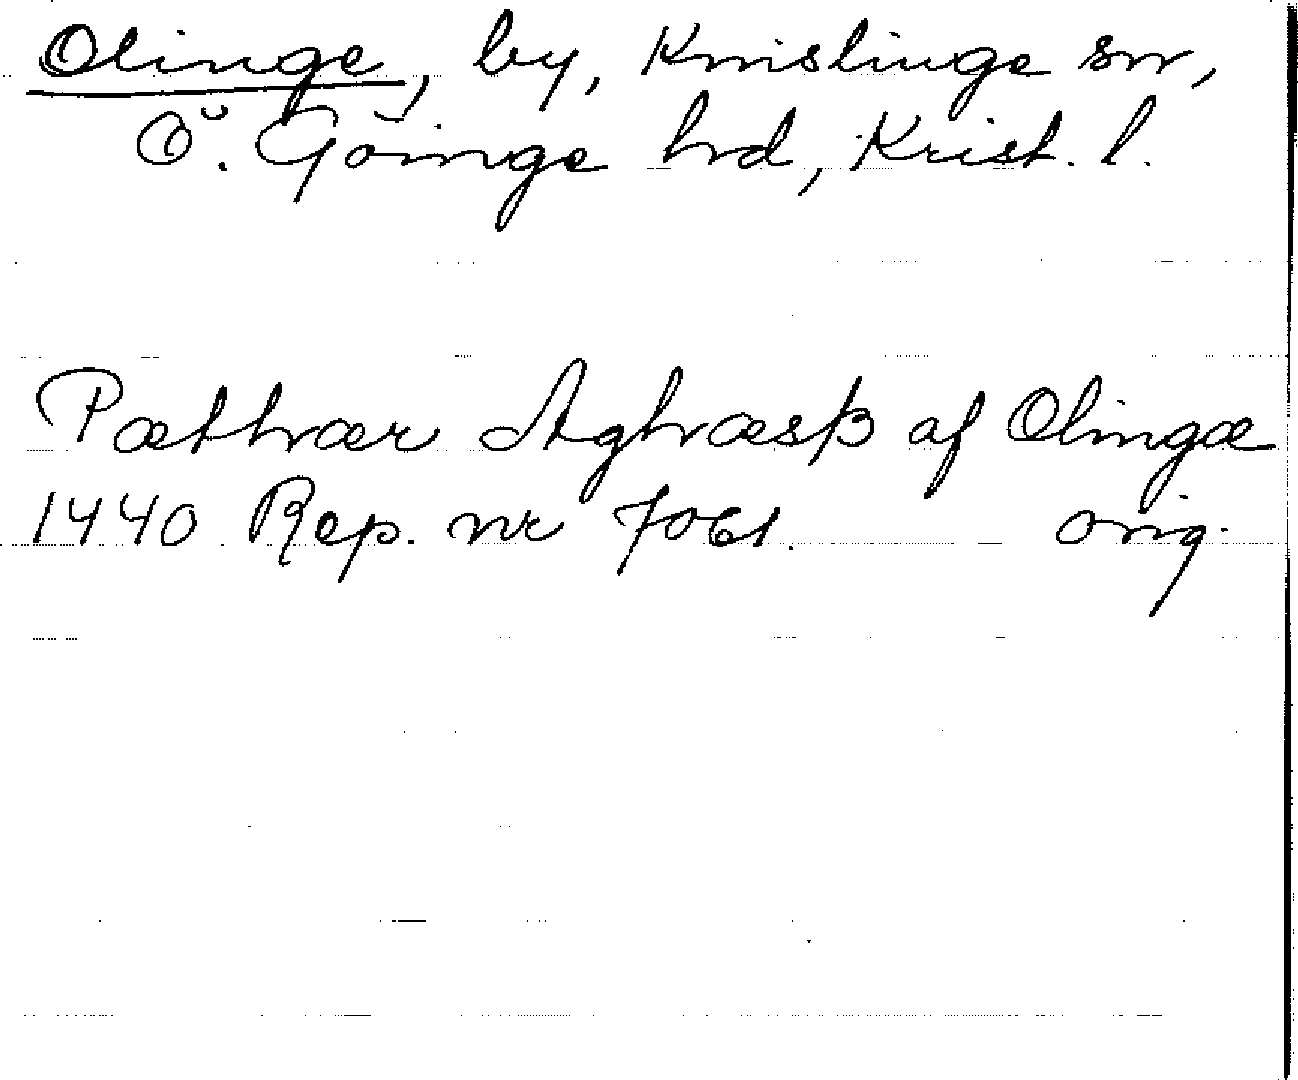 Olinge, by, Knislinge sn,
Ö. Göinge hrd, Krist. l.
Pæthær Aghræsß af Olingæ
1440 Rep. nr 7061. orig.